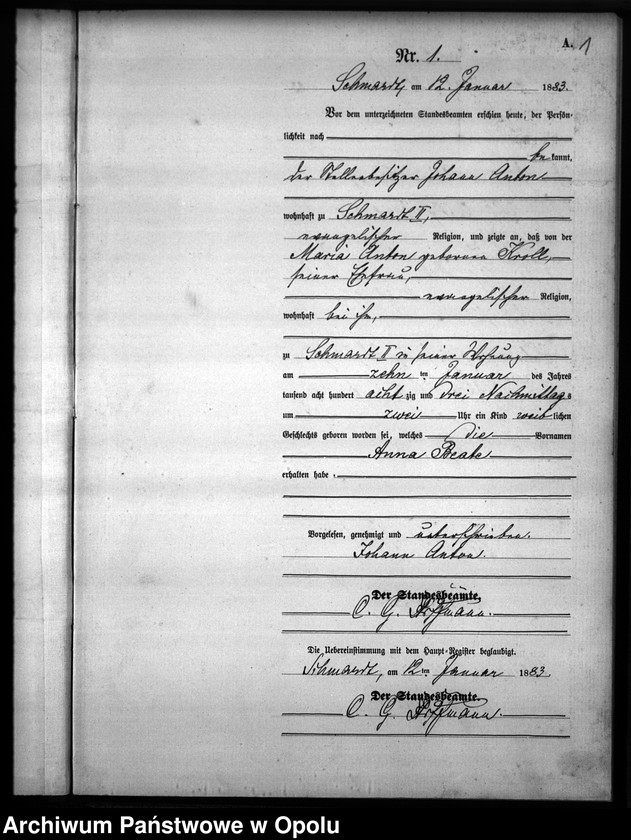 A. 1
Nr. 1.
Schmardt, am 12. Januar 1883.
Vor dem unterzeichneten Standesbeamten erschien heute, der Persön-
lichkeit nach
bekannt,
der Stellenbesitzer Johann Anton
wohnhaft zu Schmardt II,
evangelischer Religion, und zeigte an, daß von der
Maria Anton geborenen Kroll,
seiner Ehefrau,
evangelischer Religion,
wohnhaft bei ihm,
zu Schmardt II in seiner Wohnung
am zehnten Januar des Jahres
tausend acht hundert achtzig und drei Nachmittags
um zwei Uhr ein Kind weiblichen
Geschlechts geboren worden sei, welches die Vornamen
Anna Beate
erhalten habe.
Vorgelesen, genehmigt und unterschrieben.
Johann Anton.
Der Standesbeamte,
C. G. Hoffmann.
Die Uebereinstimmung mit dem Haupt-Register beglaubigt.
Schmardt, am 12ten Januar 1883.
Der Standesbeamte.
C. G. Hoffmann.
Archiwum Państwowe w Opolu